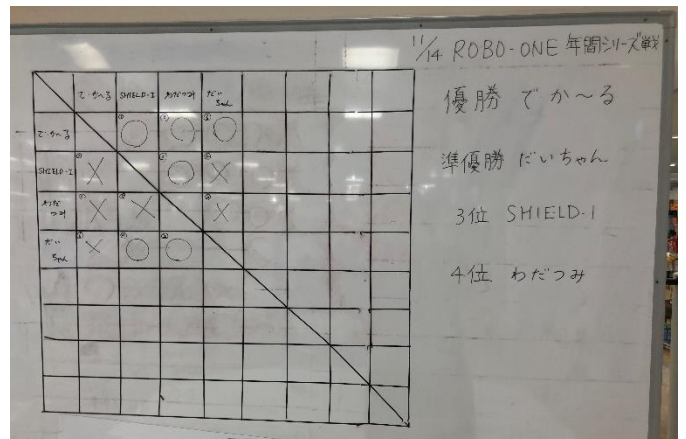 11/14 ROBO-ONE 年間シリーズ戦
でか〜る SHIELD-1 わだつみ だいちゃん
でか〜る ○ ○ ○
SHIELD-1 × ○ ×
わだつみ × × ×
だいちゃん × ○ ○
優勝 でか〜る
準優勝 だいちゃん
3位 SHIELD-1
4位 わだつみ